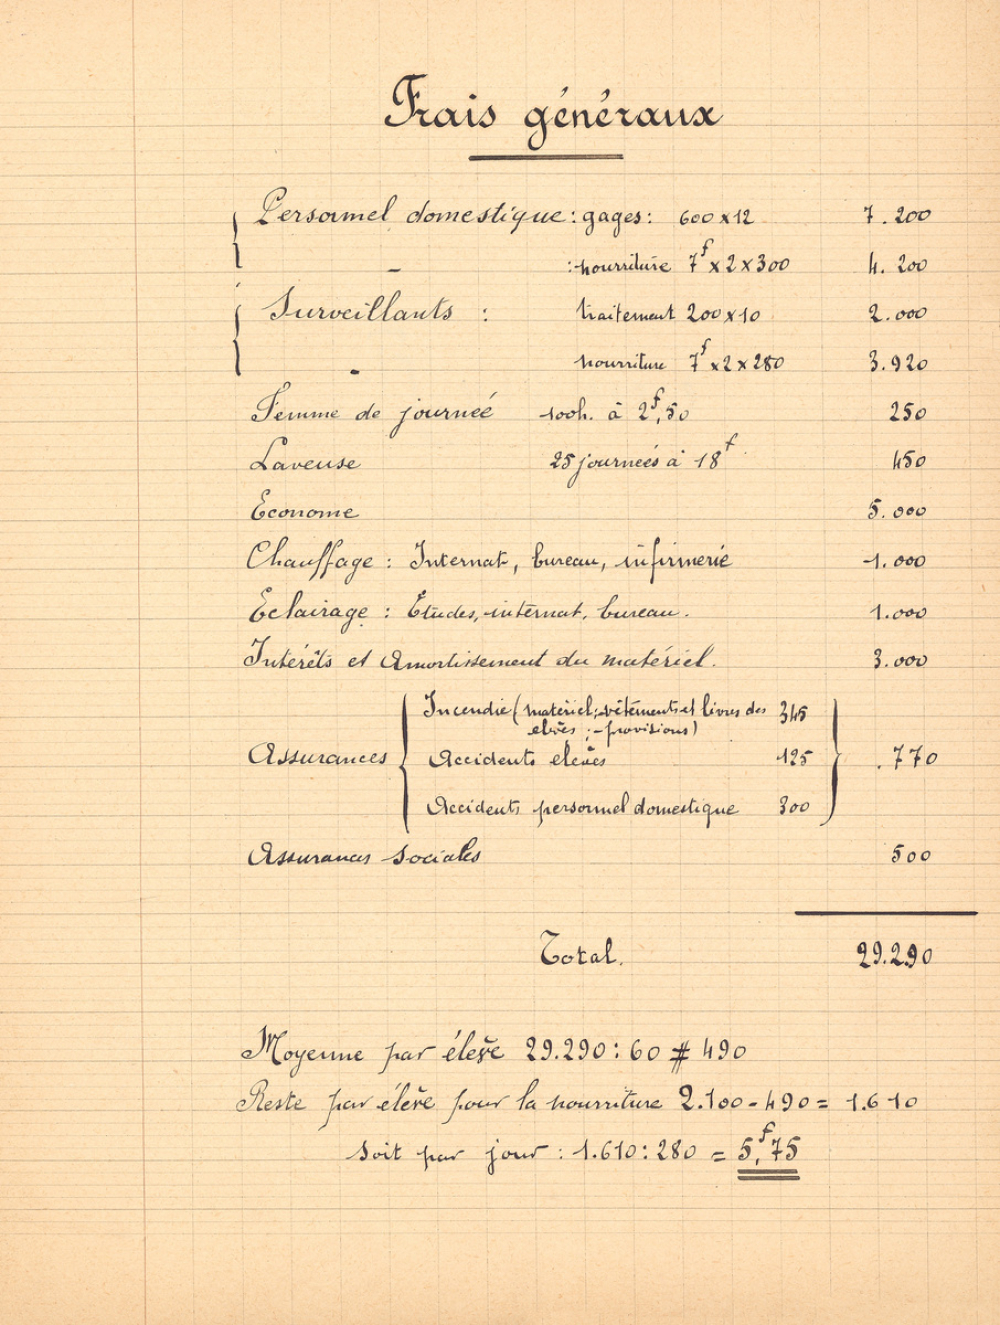 Frais généraux
Personnel domestique : gages : 600 x 12 7.200
- : nourriture 7f x 2 x 300 4.200
Surveillants : traitement 200 x 10 2.000
- nourriture 7f x 2 x 280 3.920
Femme de journée 100h. à 2f,50 250
Laveuse 25 journées à 18f 450
Econome 5.000
Chauffage : Internat, bureau, infirmerie 1.000
Eclairage : Etudes, internat, bureau. 1.000
Intérêts et Amortissement du matériel. 3.000
Incendie (matériel, vêtements et livres des 345
élèves ; - provisions)
Assurances Accidents élèves 125 .770
Accidents personnel domestique 300
Assurances sociales 500
Total. 29.290
Moyenne par élève 29.290 : 60 # 490
Reste par élève pour la nourriture 2.100 - 490 = 1.610
soit par jour : 1.610 : 280 = 5f,75